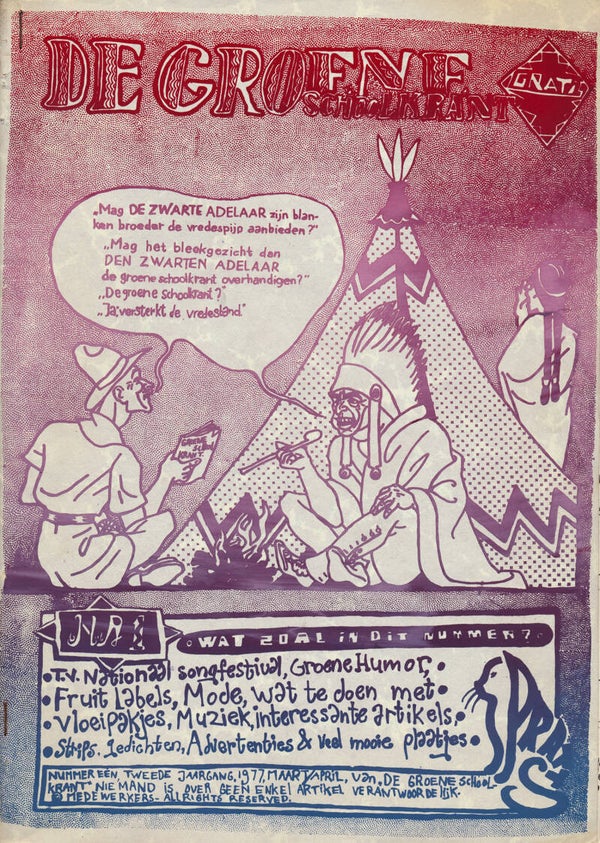 DE GROENE
SCHOOLKRANT
GRATIS
„Mag DE ZWARTE ADELAAR zijn blan-
ken broeder de vredespijp aanbieden?"
„Mag het bleekgezicht dan
DEN ZWARTEN ADELAAR
de groene schoolkrant overhandigen?"
„De groene schoolkrant?"
„Ja; versterkt de vredesland."
GROENE
SCHOOL
KRANT.
N.R 1
• WAT ZOAL IN DIT NUMMER? •
• T.V. Nationaal songfestival, Groene Humor, •
• Fruit Labels, Mode, wat te doen met •
• Vloeipakjes, Muziek, interessante artikels, •
• Strips, Gedichten, Advertenties & veel mooie plaatjes •
NUMMER EEN, TWEEDE JAARGANG, 1977, MAART/APRIL, van „DE GROENE SCHOOL-
KRANT" NIEMAND IS OVER GEEN ENKEL ARTIKEL VERANTWOORDELIJK.
© MEDEWERKERS - ALL RIGHTS RESERVED.